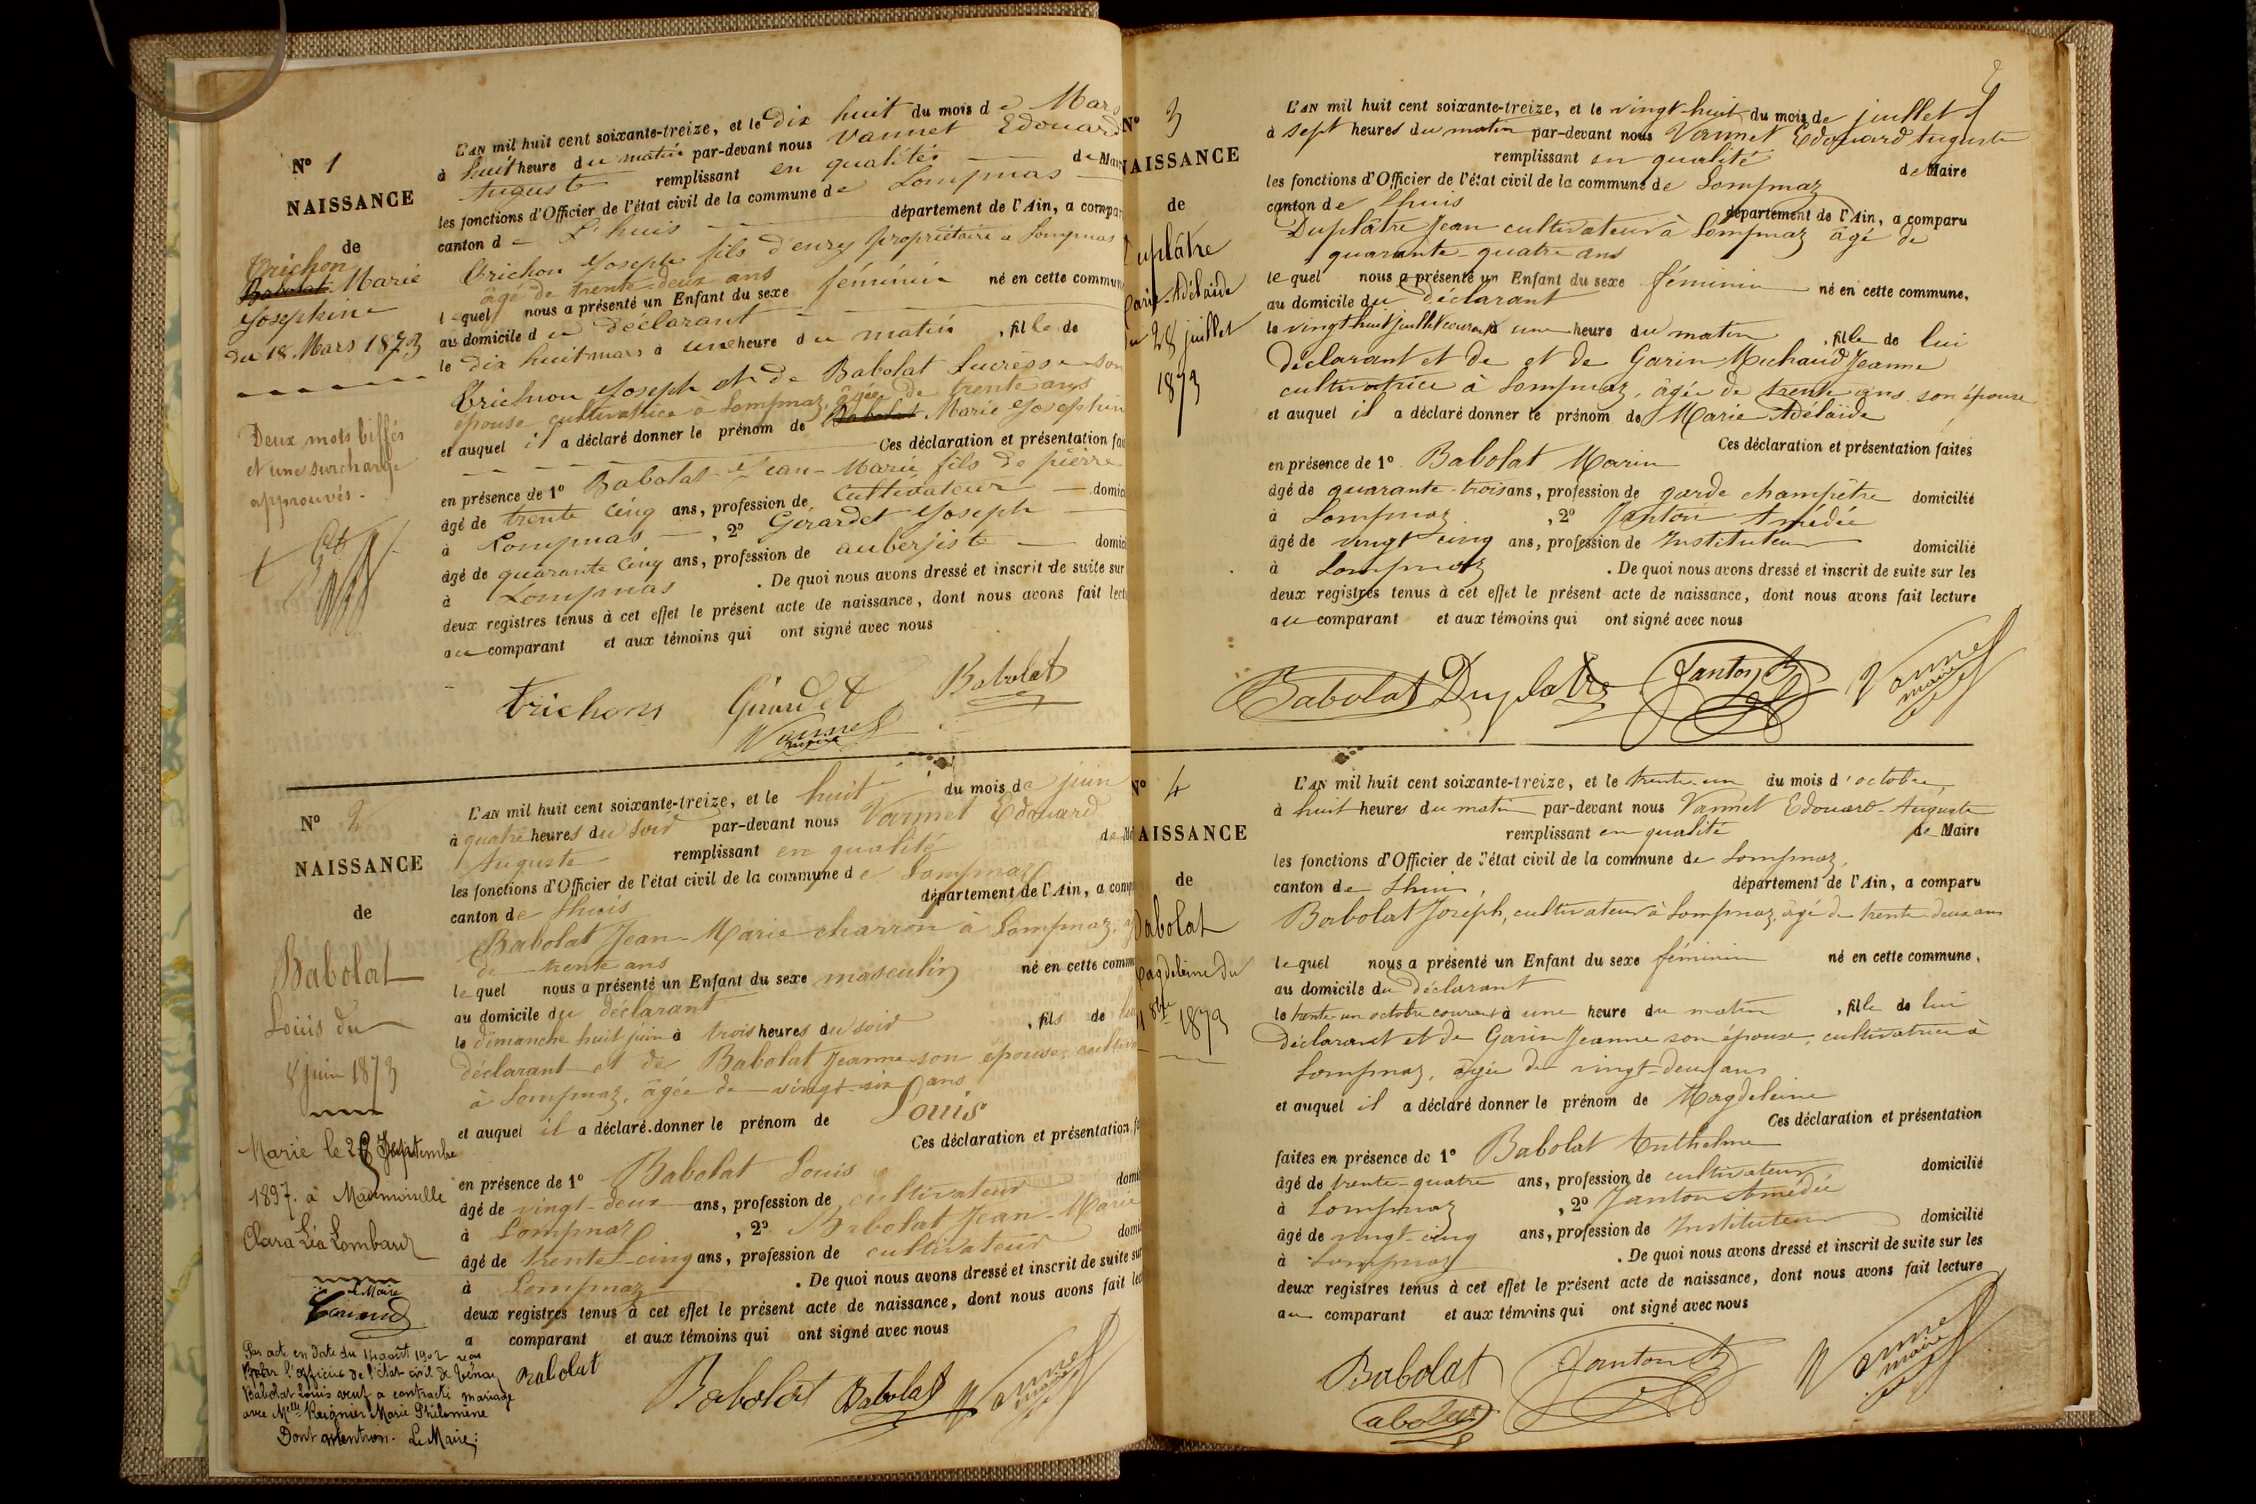 N° 1
NAISSANCE
de
Trichon
Babolat Marie
Josephine
du 18 Mars 1873
Deux mots biffés
et une surcharge
approuvés.
L'AN mil huit cent soixante-treize, et le dix huit du mois de Mars
à huit heure du matin par-devant nous Vannet Edouard
Auguste remplissant en qualités de Mai
les fonctions d'Officier de l'état civil de la commune de Lompnas
canton de L'huis département de l'Ain, a compar
Trichon Joseph fils d'enry propriétaire a Lompnas
âgé de trente-deux ans
lequel nous a présenté un Enfant du sexe féminin né en cette commun
au domicile du déclarant
le dix huit mars à une heure du matin, fille de
Trichon Joseph et de Babolat Lucresse son
épouse cultivatrice à Lompnaz, âgée de trente ans
et auquel il a déclaré donner le prénom de Babolat Marie Josephin
Ces déclaration et présentation fai
en présence de 1° Babolat Jean-Marie fils de pierre
âgé de trente cinq ans, profession de Cultivateur domici
à Lompnas, 2° Gérardet Joseph
âgé de quarante cinq ans, profession de auberjiste domici
à Lompnas. De quoi nous avons dressé et inscrit de suite sur
deux registres tenus à cet effet le présent acte de naissance, dont nous avons fait lect
au comparant et aux témoins qui ont signé avec nous
Trichon Girardet Babolat
Vannet
maire
N° 2
NAISSANCE
de
Babolat
Louis du
8 juin 1873
Marié le 28 Septembre
1897. à Mademoiselle
Clara Léa Lombard
Le Maire
Par acte en date du 14 août 1902 reçu
par l'officier de l'état civil de Bénay
Babolat Louis veuf a contracté mariage
avec Melle Reignier Marie Philomène
Dont mention. Le Maire:
L'AN mil huit cent soixante-treize, et le huit du mois de juin
à quatre heures du soir par-devant nous Vannet Edouard
Auguste remplissant en qualité de Ma
les fonctions d'Officier de l'état civil de la commune de Lompnaz
canton de Lhuis département de l'Ain, a comp
Babolat Jean-Marie charron à Lompnaz, âg
de trente ans
lequel nous a présenté un Enfant du sexe masculin né en cette comm
au domicile du déclarant
le dimanche huit juin à trois heures du soir, fils de lui
déclarant et de Babolat Jeanne son épouse, cultiva
à Lompnaz, âgée de vingt-six ans
et auquel il a déclaré donner le prénom de Louis
Ces déclaration et présentation fa
en présence de 1° Babolat Louis
âgé de vingt-deux ans, profession de cultivateur domi
à Lompnaz, 2° Babolat Jean-Marie
âgé de trente-cinq ans, profession de cultivateur domi
à Lompnaz. De quoi nous avons dressé et inscrit de suite sur
deux registres tenus à cet effet le présent acte de naissance, dont nous avons fait lec
a comparant et aux témoins qui ont signé avec nous
Babolat Babolat Babolat Vannet
maire
N° 3
NAISSANCE
de
Duplâtre
Marie-Adélaïde
du 28 juillet
1873
L'AN mil huit cent soixante-treize, et le vingt-huit du mois de juillet
à sept heures du matin par-devant nous Vannet Edouard Auguste
remplissant en qualité de Maire
les fonctions d'Officier de l'état civil de la commune de Lompnaz
canton de Lhuis département de l'Ain, a comparu
Duplâtre Jean cultivateur à Lompnaz âgé de
quarante-quatre ans
lequel nous a présenté un Enfant du sexe féminin né en cette commune,
au domicile du déclarant
le vingt huit juillet courant à une heure du matin, fille de lui
déclarant et de et de Garin Michaud Jeanne
cultivatrice à Lompnaz, âgée de trente ans son épouse
et auquel il a déclaré donner le prénom de Marie Adélaïde
Ces déclaration et présentation faites
en présence de 1° Babolat Marin
âgé de quarante-trois ans, profession de garde champêtre domicilié
à Lompnaz, 2° Janton Amédée
âgé de vingt cinq ans, profession de Instituteur domicilié
à Lompnaz. De quoi nous avons dressé et inscrit de suite sur les
deux registres tenus à cet effet le présent acte de naissance, dont nous avons fait lecture
au comparant et aux témoins qui ont signé avec nous
Babolat Duplatre Janton A Vannet
maire
N° 4
NAISSANCE
de
Babolat
Magdeleine du
31 8bre 1873
L'AN mil huit cent soixante-treize, et le trente-un du mois d'octobre
à huit heures du matin par-devant nous Vannet Edouard-Auguste
remplissant en qualité de Maire
les fonctions d'Officier de l'état civil de la commune de Lompnaz,
canton de Lhuis, département de l'Ain, a comparu
Babolat Joseph, cultivateur à Lompnaz, âgé de trente-deux ans
lequel nous a présenté un Enfant du sexe féminin né en cette commune,
au domicile du déclarant
le trente-un octobre courant à une heure du matin, fille de lui
déclarant et de Garin Jeanne son épouse, cultivatrice à
Lompnaz, âgée de vingt-deux ans
et auquel il a déclaré donner le prénom de Magdeleine
Ces déclaration et présentation
faites en présence de 1° Babolat Anthelme
âgé de trente-quatre ans, profession de cultivateur, domicilié
à Lompnaz, 2° Janton Amédée
âgé de vingt-cinq ans, profession de Instituteur domicilié
à Lompnaz. De quoi nous avons dressé et inscrit de suite sur les
deux registres tenus à cet effet le présent acte de naissance, dont nous avons fait lecture
au comparant et aux témoins qui ont signé avec nous
Babolat Janton A Vannet
maire
abolat